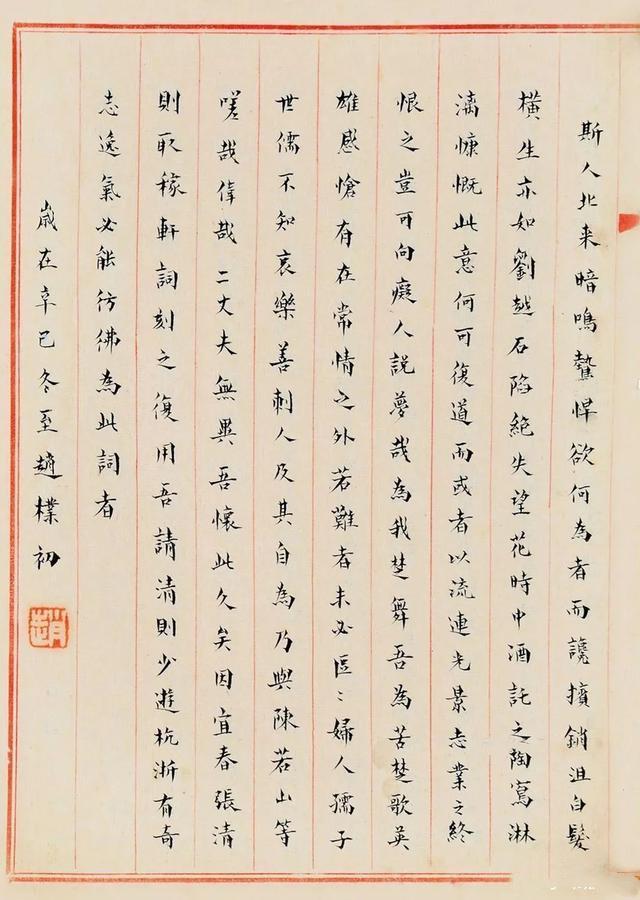 斯人北来暗鳴鷙悍欲何為者而讒擯銷沮白髮
橫生亦如劉越石陷絶失望花時中酒託之陶寫淋
漓慷慨此意何可復道而或者以流連光景志業之終
恨之豈可向癡人説夢哉為我楚舞吾為苦楚歌英
雄感愴有在常情之外若難者未必區〻婦人孺子
世儒不知哀樂善刺人及其自為乃與陳若山等
嗟哉偉哉二丈夫無異吾懷此久矣因宜春張清
則取稼軒詞刻之復用吾請清則少遊杭浙有奇
志逸氣必能彷彿為此詞者
歲在辛巳冬至趙樸初
趙